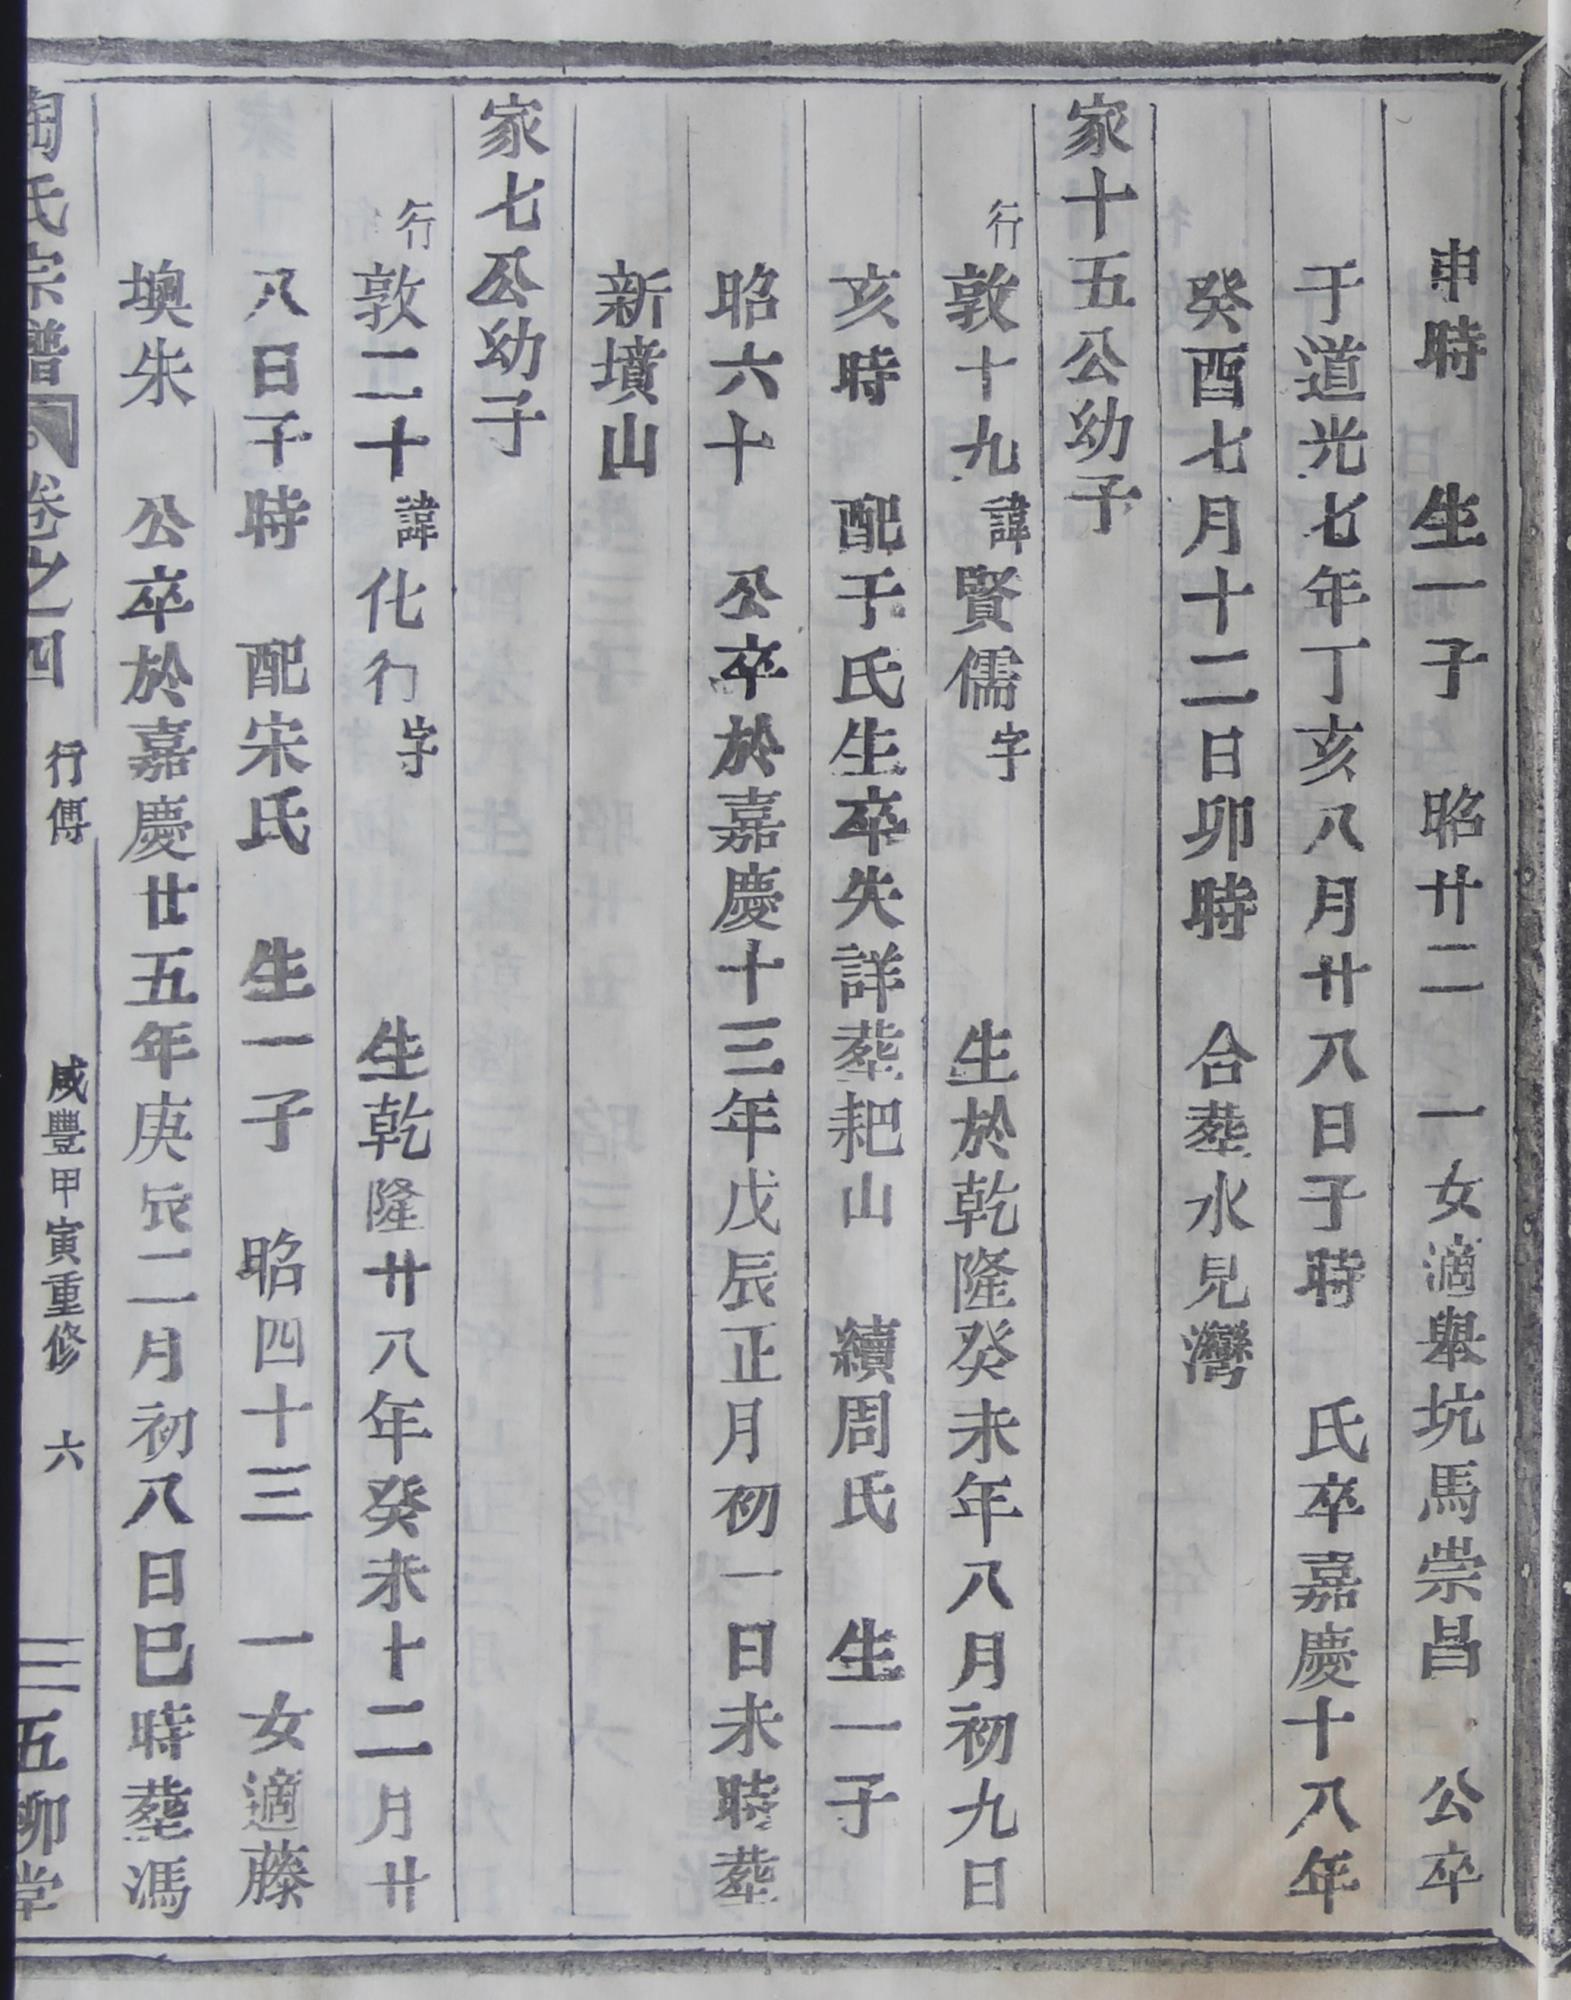 申時　生一子　昭廿二　一女適舉坑馬崇昌　公卒
于道光七年丁亥八月廿八日子時　氏卒嘉慶十八年
癸酉七月十二日卯時　合塟水見灣
家十五公幼子
行敦十九諱賢儒字　生於乾隆癸未年八月初九日
亥時　配于氏生卒失詳塟耙山　續周氏　生一子
昭六十　公卒於嘉慶十三年戊辰正月初一日未時塟
新墳山
家七公幼子
行敦二十諱化行字　生乾隆廿八年癸未十二月廿
八日子時　配宋氏　生一子　昭四十三　一女適藤
墺朱　公卒於嘉慶廿五年庚辰二月初八日巳時塟馮
陶氏宗譜　卷之四　行傳　咸豐甲寅重修　六　五柳堂